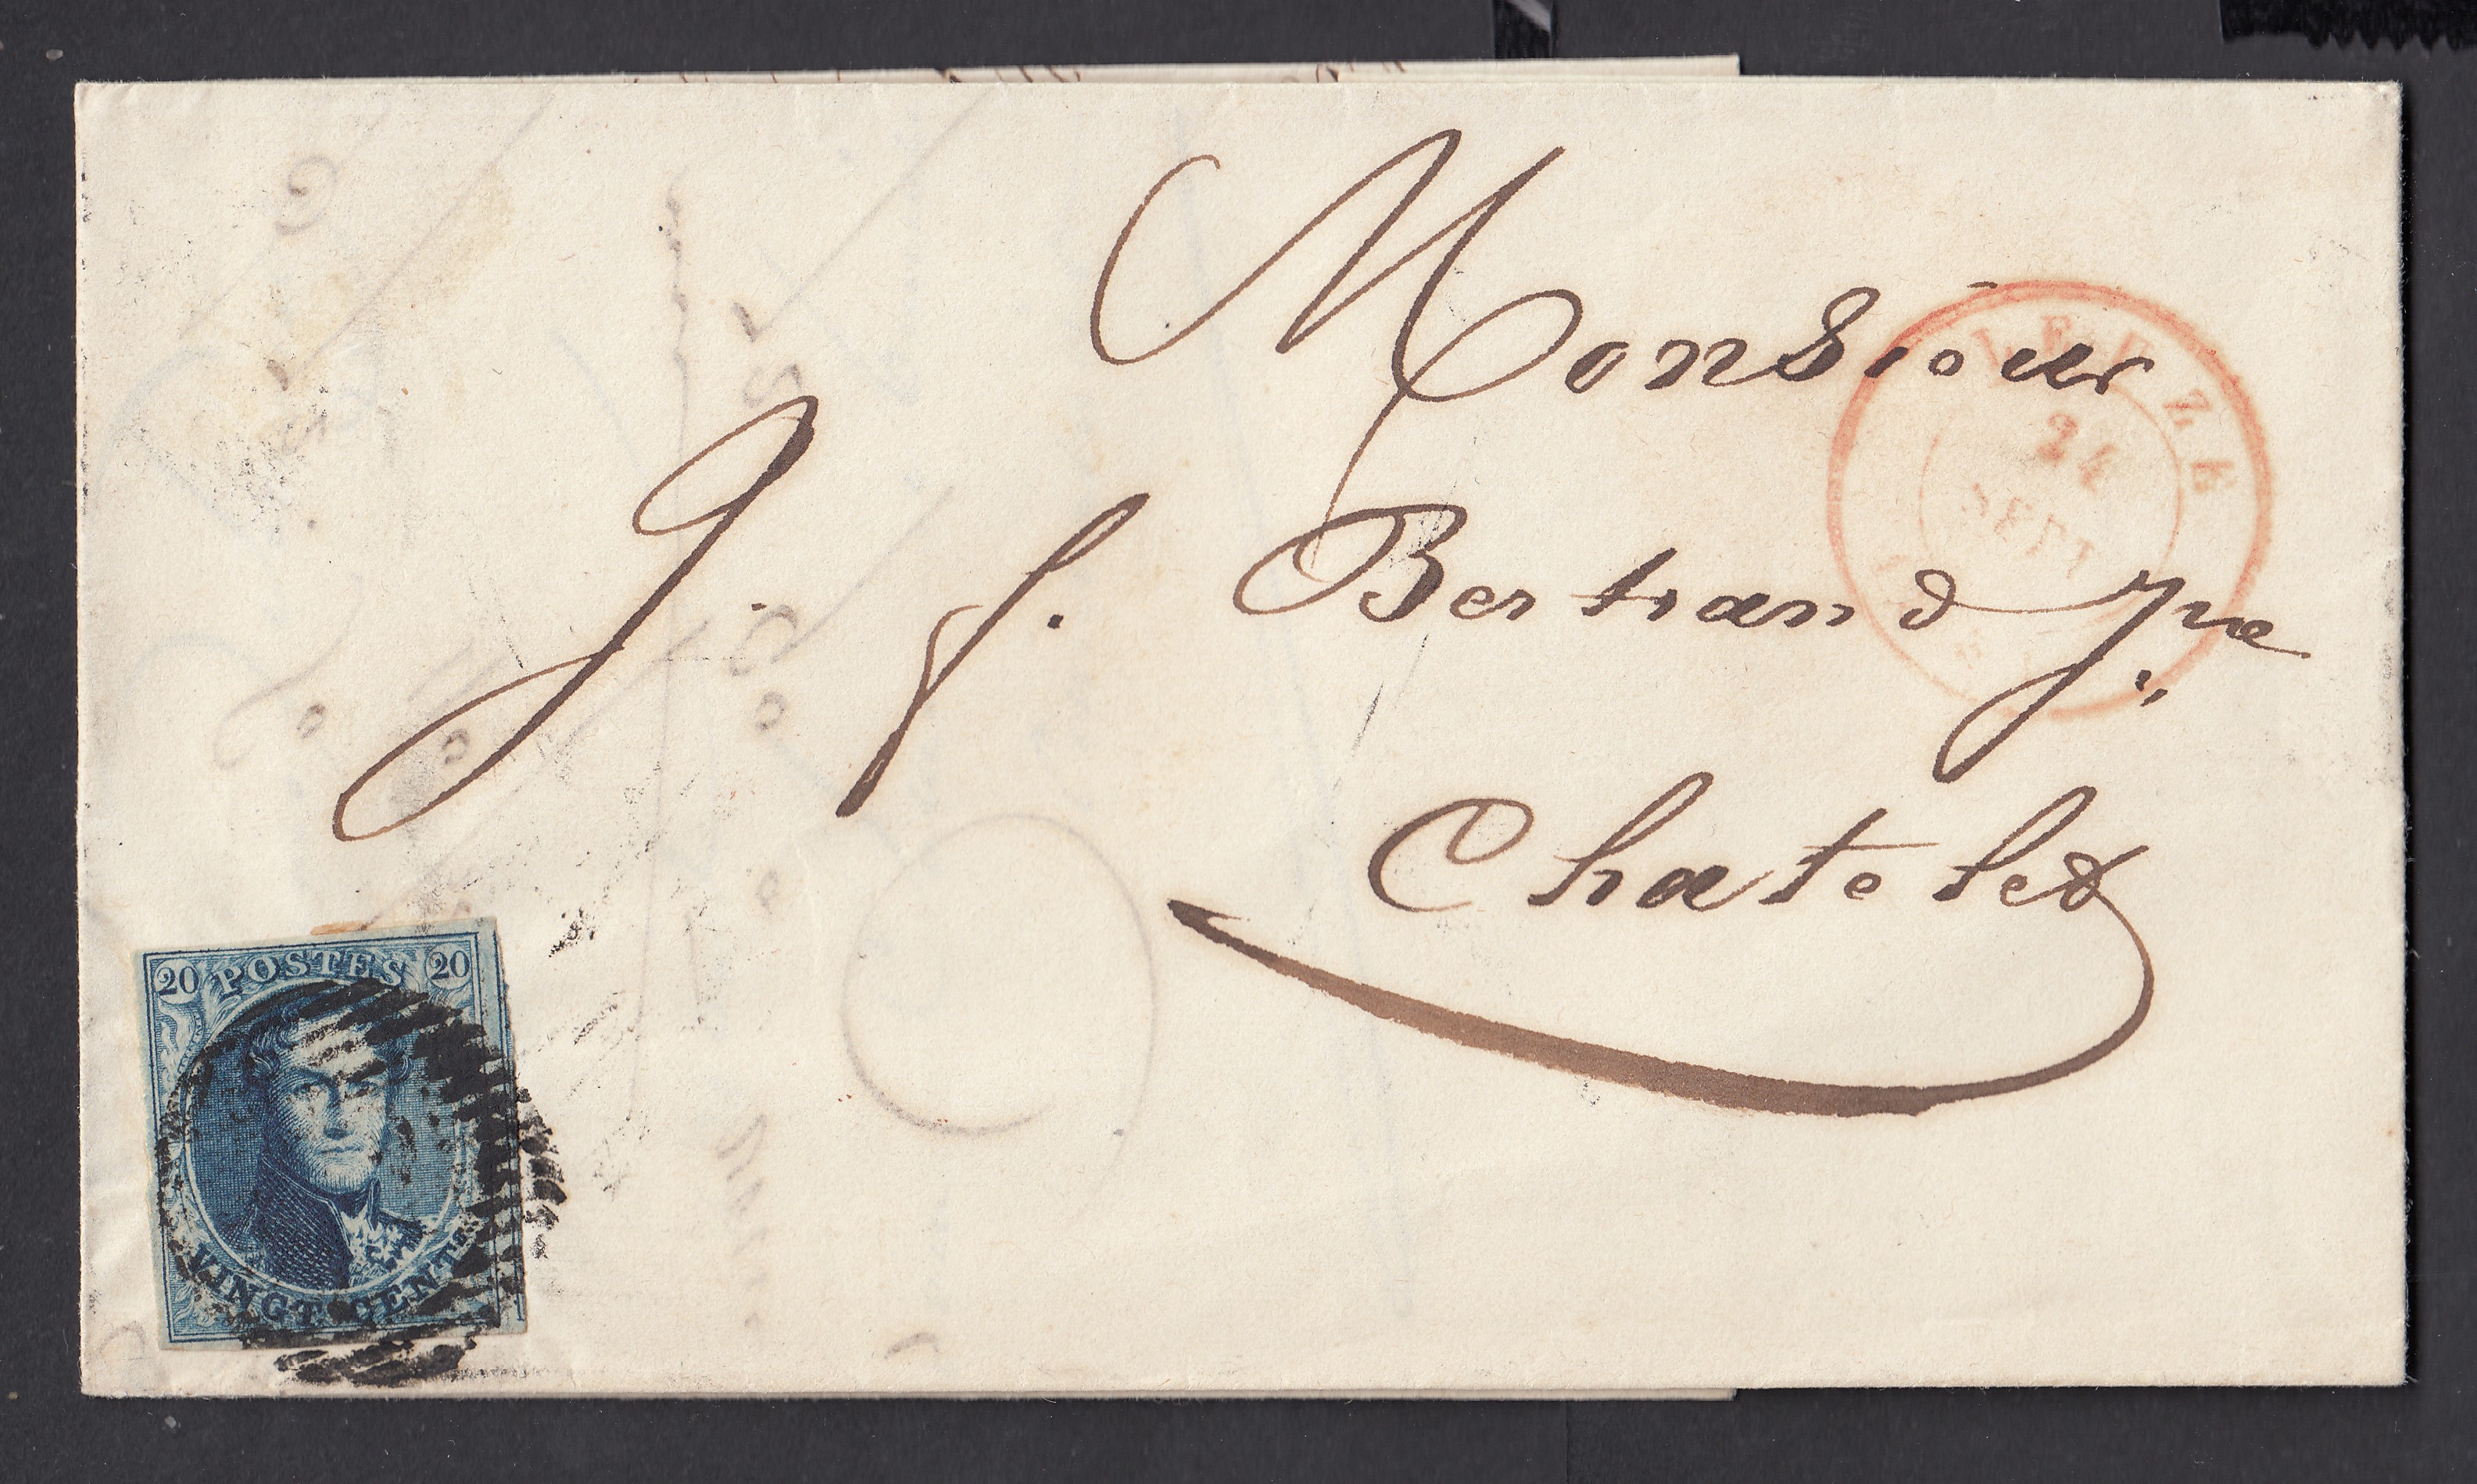 Monsieur
J. f. Bertrand Jne
Chatelet
LEUZE
24
SEPT
20 POSTES 20
VINGT CENTES